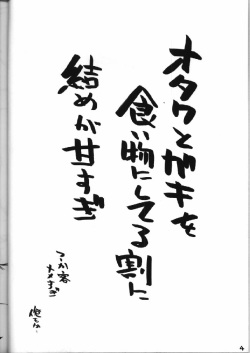 オタクとガキを
食い物にしてる割に
結めが甘すぎ
つーか客
ナメすぎ
4